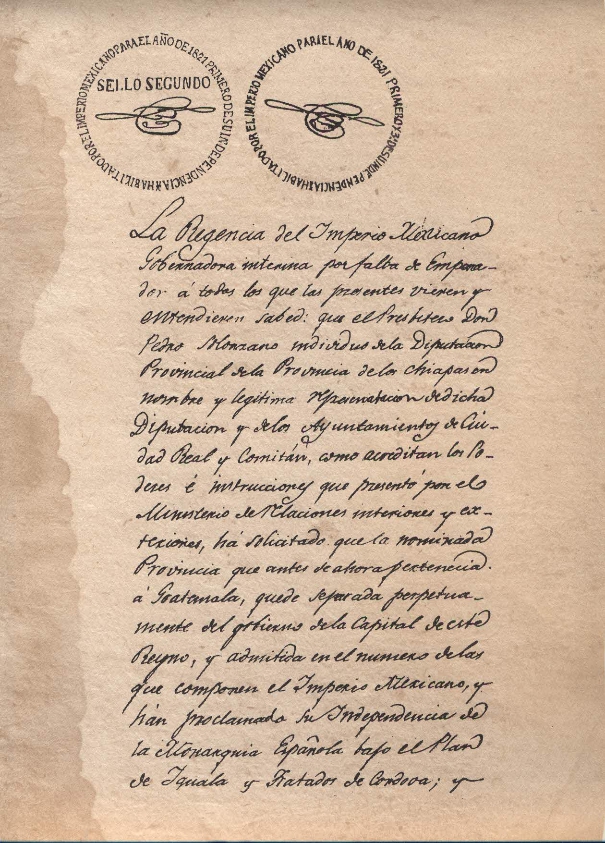 HABILITADO POR EL IMPERIO MEXICANO PARA EL AÑO DE 1821 PRIMERO DE SU INDEPENDENCIA
SELLO SEGUNDO
HABILITADO POR EL IMPERIO MEXICANO PARIEL ANO DE 1821 PRIMERO Y 3º DE SU INDEPENDENCIA
La Regencia del Imperio Mexicano
Gobernadora interina por falta de Empera-
dor á todos los que las presentes vieren y
entendieren sabed: que el Presbitero Don
Pedro Solorzano individuo de la Diputacion
Provincial de la Provincia de los Chiapas en
nombre y legitima representacion de dicha
Diputacion y de los Ayuntamientos de Ciu-
dad Real y Comitán, como acreditan los Po-
deres é instrucciones que presentó por el
Ministerio de Relaciones interiores y ex-
teriores, há solicitado que la nominada
Provincia que antes de ahora pertenecia
á Goatemala, quede separada perpetua-
mente del gobierno de la Capital de este
Reyno, y admitida en el numero de las
que componen el Imperio Mexicano, y
hán proclamado su Independencia de
la Monarquia Española bajo el Plan
de Iguala y Tratados de Cordova; y